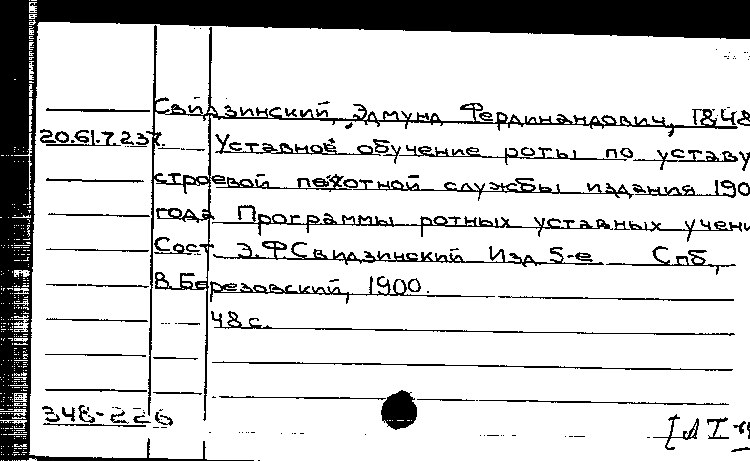 Свидзинский, Эдмунд Фердинандович, 1848
20.61.7.237. Уставное обучение роты по уставу
строевой пехотной службы издания 190
года Программы ротных уставных учени
Сост. Э.Ф Свидзинский Изд 5-е Спб,
В. Березовский, 1900.
48 с.
348-226